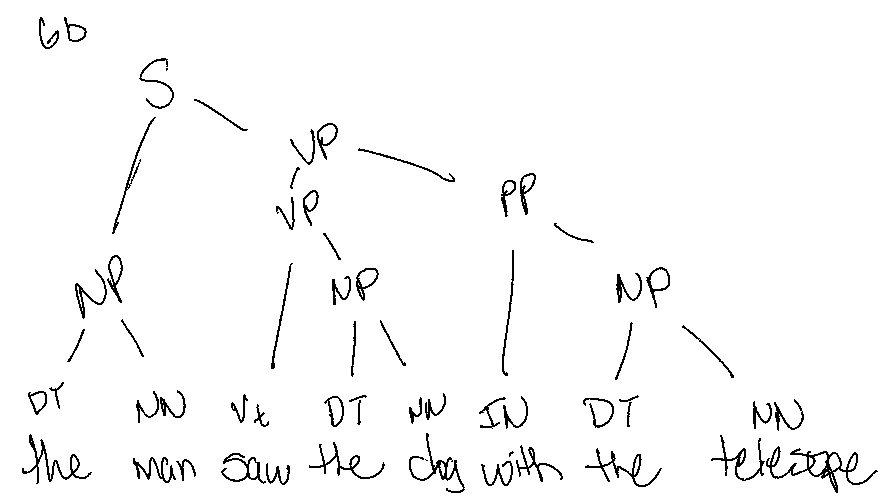 6b
S
VP
VP PP
NP NP NP
DT NN Vt DT NN IN DT NN
the man saw the dog with the telescope